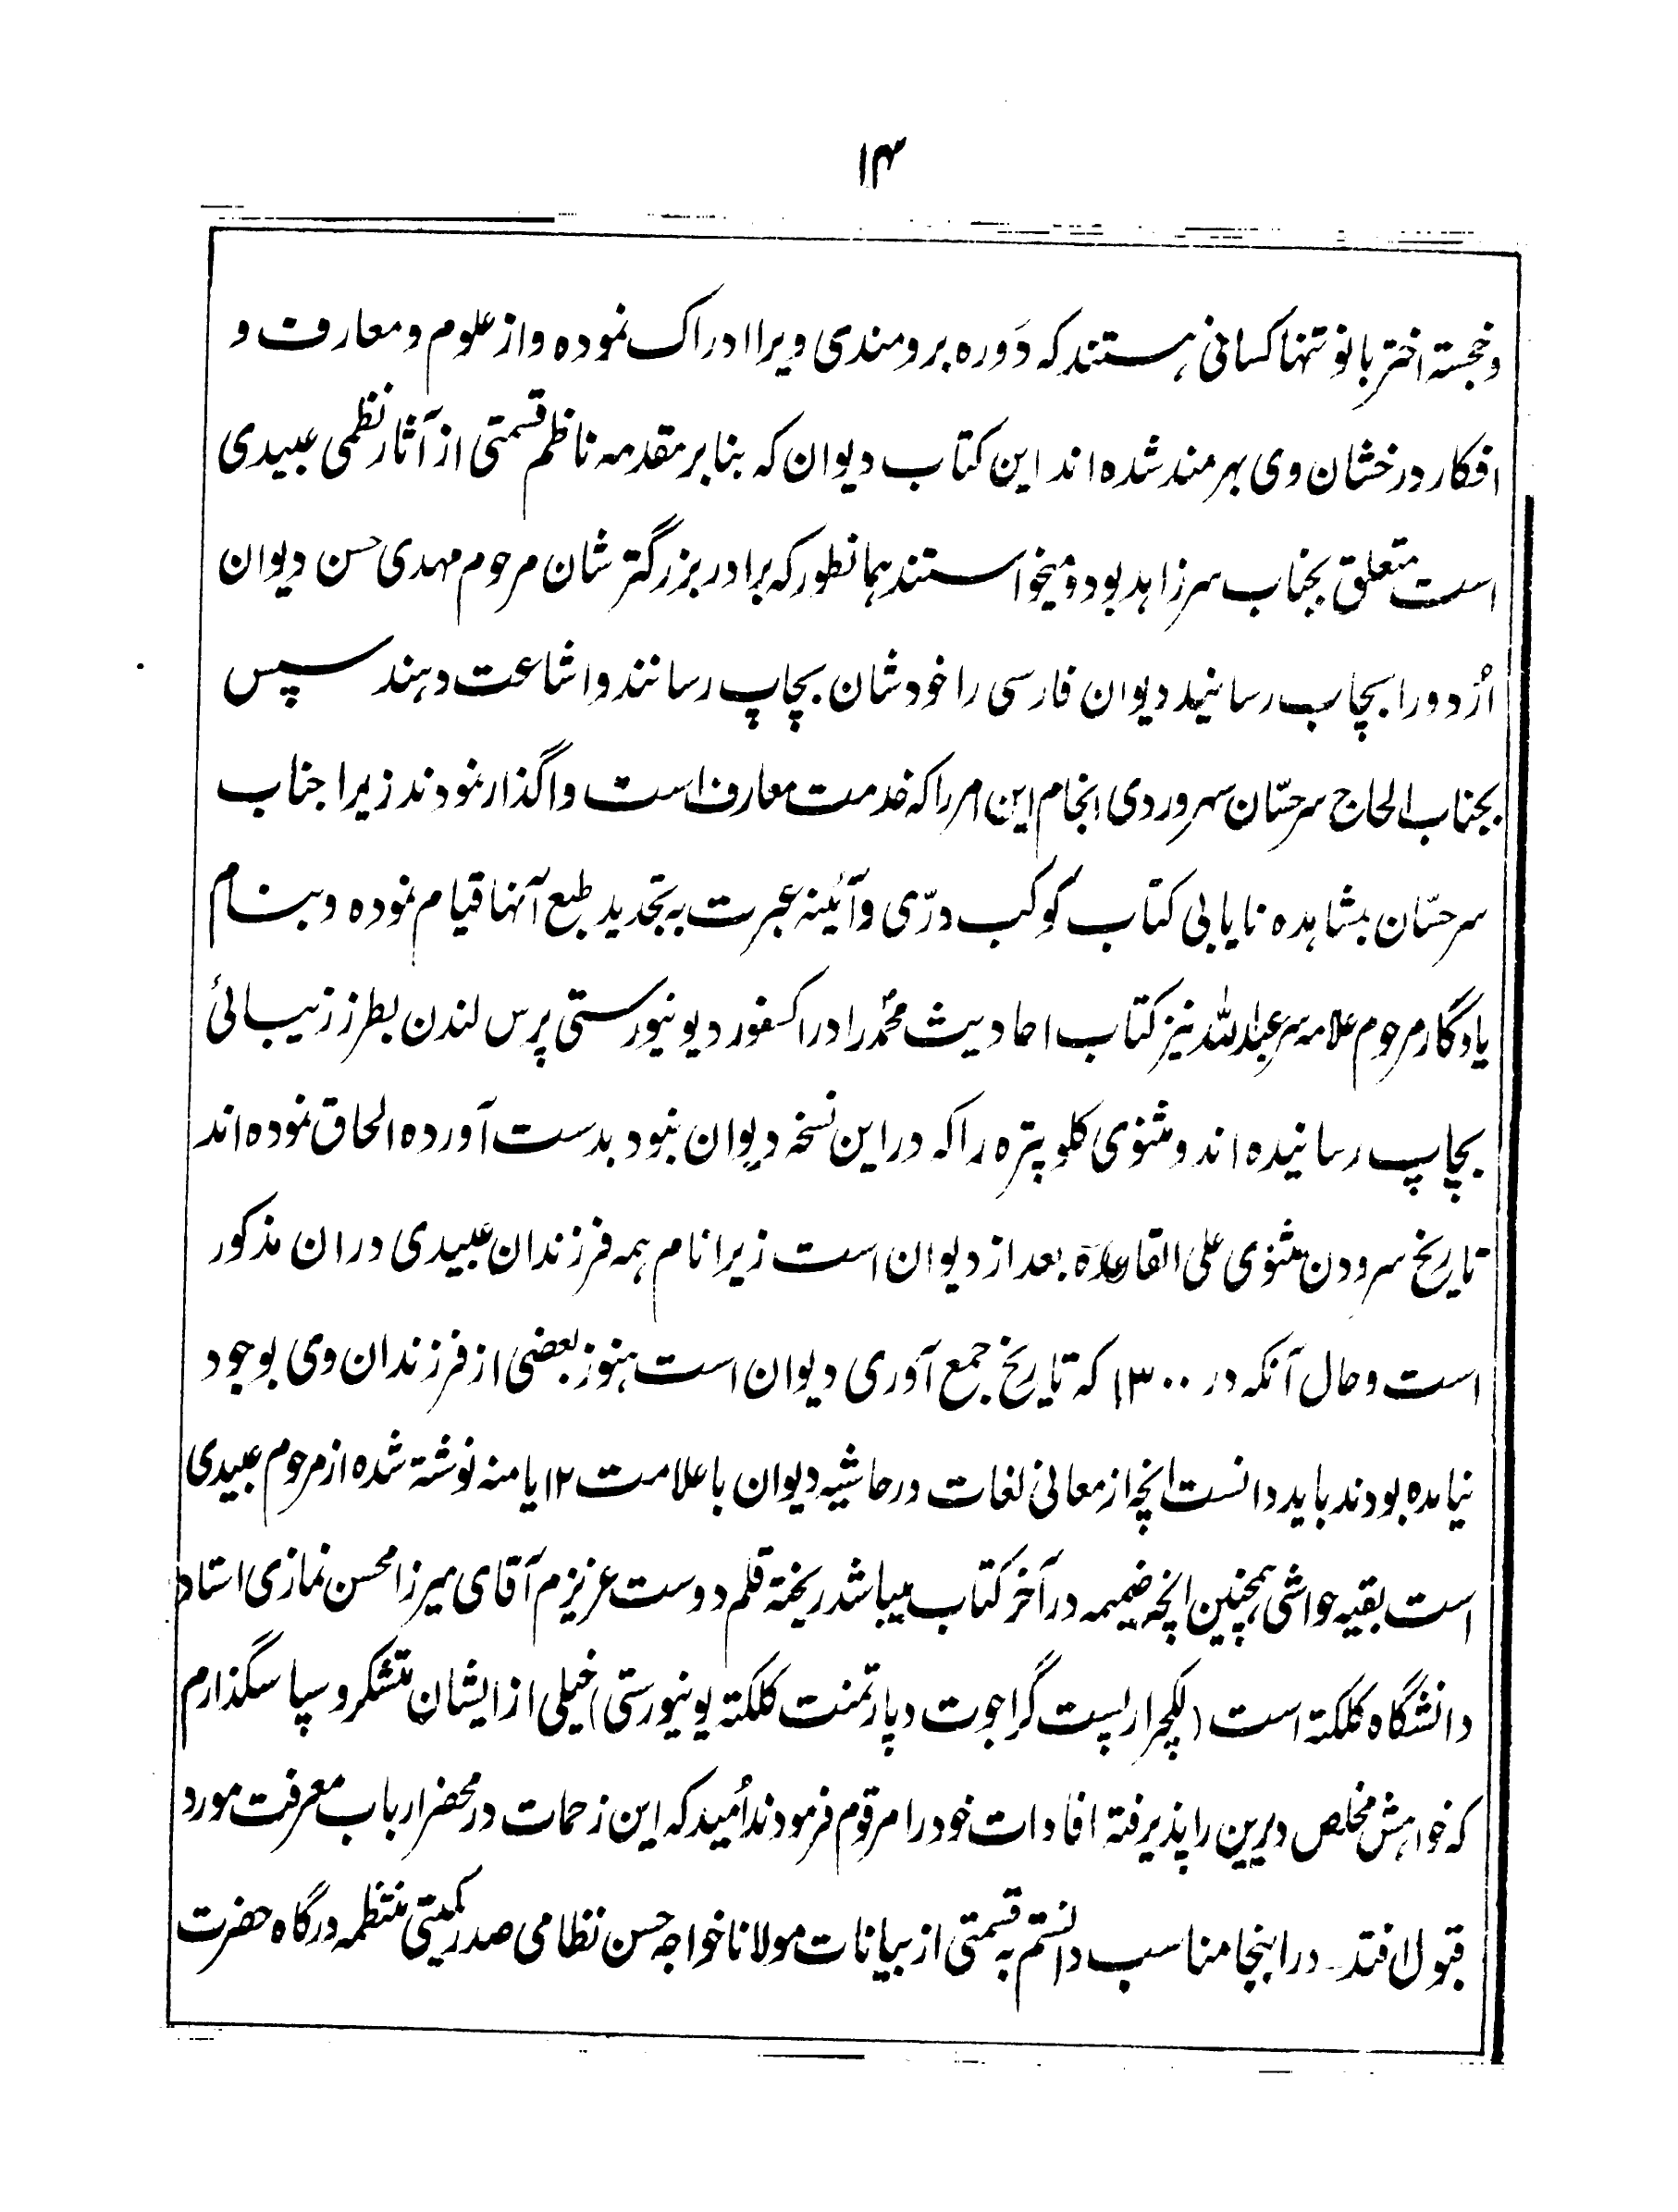 ۱۴
و خجسته اختر بانو تنها کسانی هستند که دَوره برومندی ویرا ادراک نموده و از علوم و معارف و
افکار درخشان وی بهرمند شده اند این کتاب دیوان که بنابر مقدمه ناظم قسمتی از آثار نظمی عبیدی
است متعلق بجناب سر زاهد بود و میخواستند همانطور که برادر بزرگتر شان مرحوم مهدی حسن دیوان
اُردو را بچاپ رسانید دیوان فارسی را خودشان بچاپ رسانند و اشاعت دهند سپس
بجناب الحاج سر حسّان سهروردی انجام این امر را که خدمت معارف است واگذار نمودند زیرا جناب
سر حسّان بمشاهده نایابی کتاب کوکب درّی و آئینه عبرت به تجدید طبع آنها قیام نموده و بنام
یادگار مرحوم علامه سر عبدالله نیز کتاب احادیث محمّد را در اکسفورد یونیورستی پرس لندن بطرز زیبائی
بچاپ رسانیده اند و مثنوی کلوپتره را که در این نسخه دیوان نبود بدست آورده الحاق نموده اند
تاریخ سرودن مثنوی علی القاعدَه بعد از دیوان است زیرا نام همه فرزندان عبیدی دران مذکور
است و حال آنکه در ۱۳۰۰ که تاریخ جمع آوری دیوان است هنوز بعضی از فرزندان وی بوجود
نیامده بودند باید دانست انچه از معانی لغات در حاشیه دیوان با علامت ۱۲ یا منه نوشته شده از مرحوم عبیدی
است بقیه حواشی همچنین انچه ضمیمه در آخر کتاب میباشد ریخته قلم دوست عزیزم آقای میرزا محسن نمازی استاد
دانشگاه کلکته است (لکچرار پست گراجوت دپارتمنت کلکته یونیورستی) خیلی از ایشان متشکر و سپاسگذارم
که خواهش مخلص دیرین را پذیرفته افادات خود را مرقوم فرمودند اُمید که این زحمات در محضر ارباب معرفت مورد
قبول افتد ـ در اینجا مناسب دانستم به قسمتی از بیانات مولانا خواجه حسن نظامی صدر کمیتی منتظمه درگاه حضرت